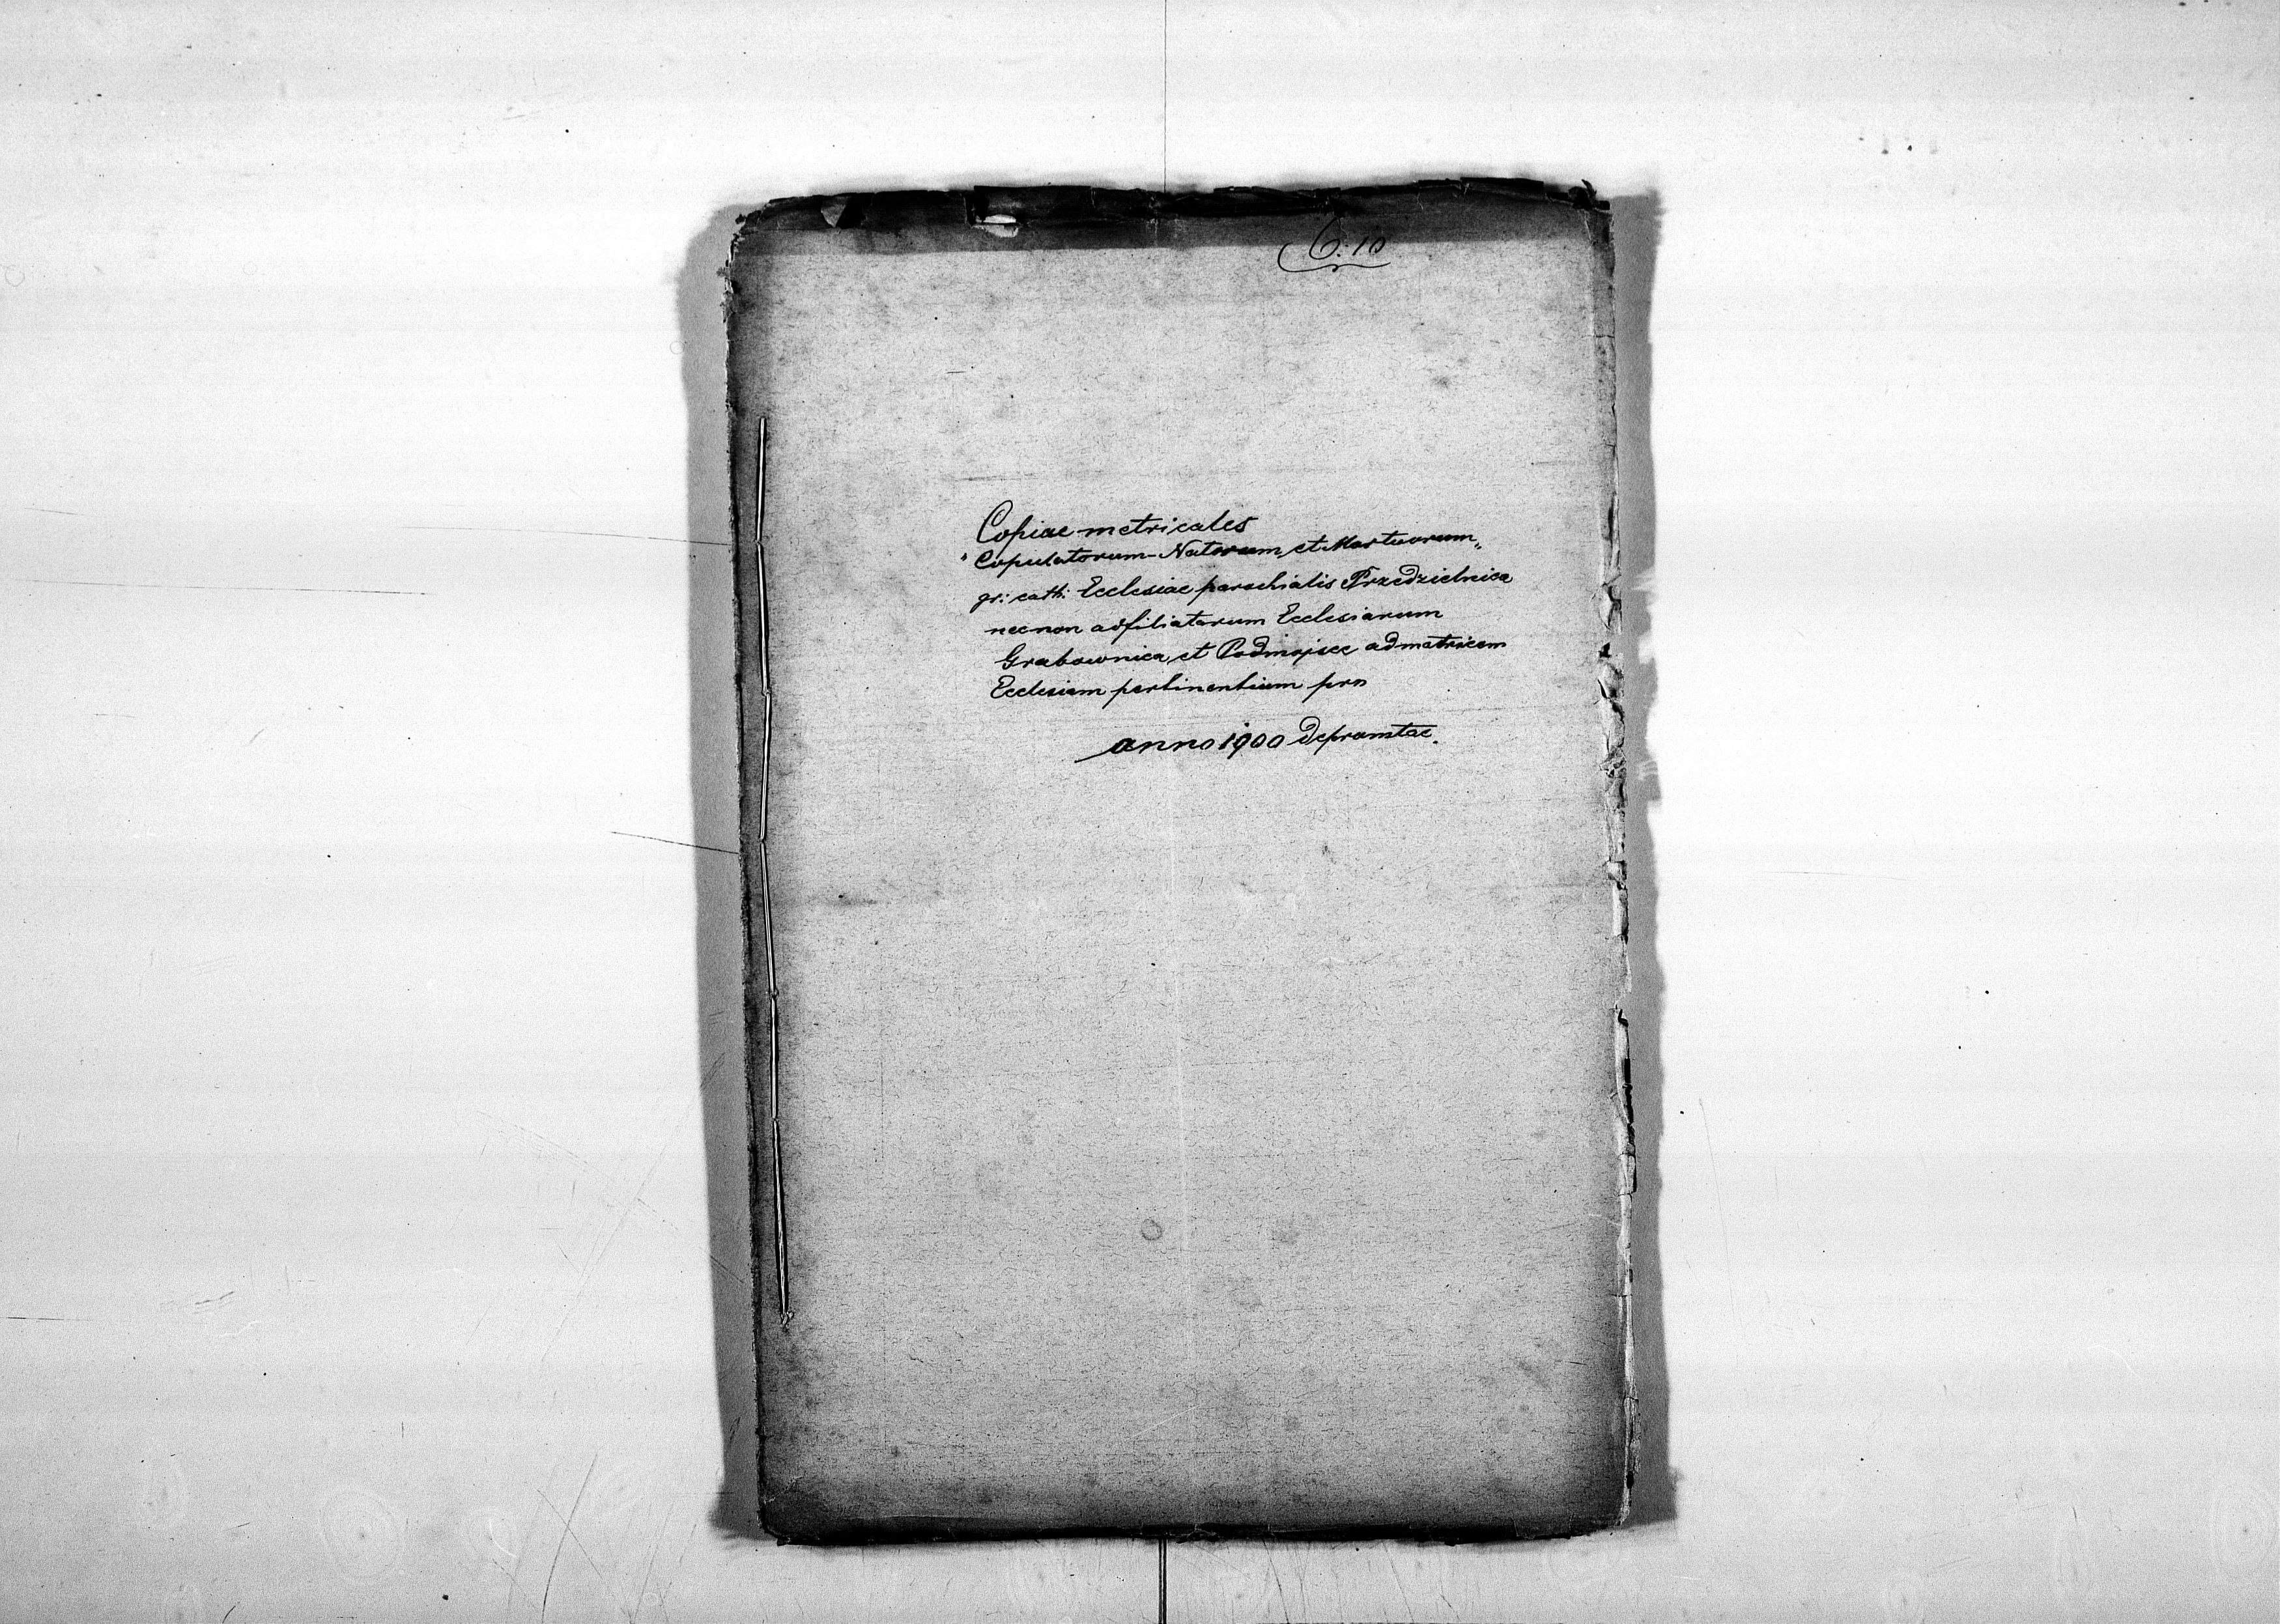 C. 10
Copiae metricales
"Copulatorum-Natorum et Mortuorum"
gr: cath: Ecclesiae parochialis Przedzielnica
necnon adfiliatarum Ecclesiarum
Grabownica et Podmojsce ad matricem
Ecclesiam pertinentium pro
anno 1900 depromtae.